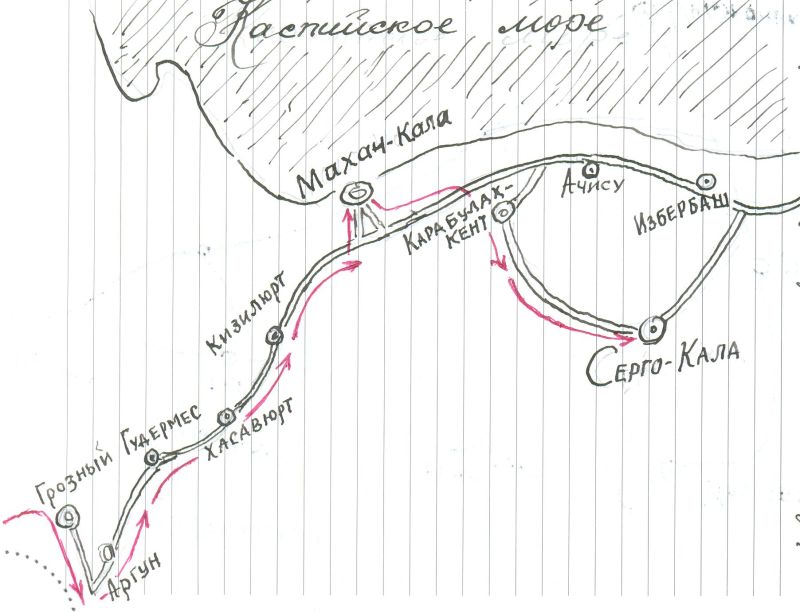 Каспийское море
Махач-Кала
Ачису
Избербаш
Карабулах-
кент
Кизилюрт
Серго-Кала
Хасавюрт
Гудермес
Грозный
Аргун